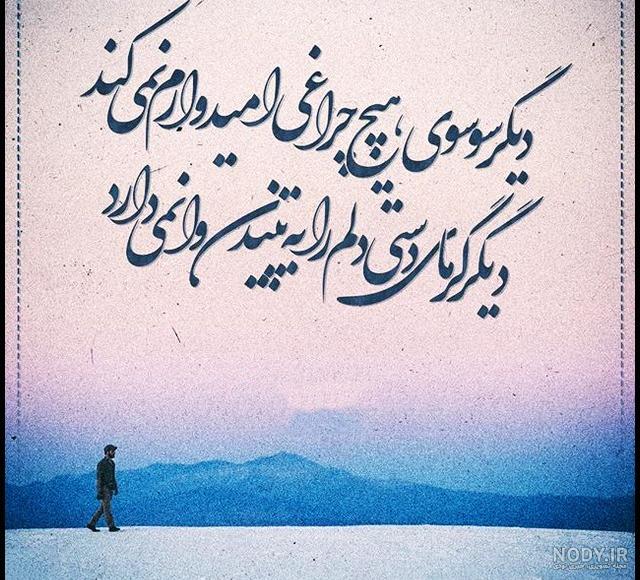 دیگر سوسوی هیچ چراغی امیدوارم نمی کند
دیگر گرمای دستی دلم را به تپیدن وا نمی دارد
NODY.IR